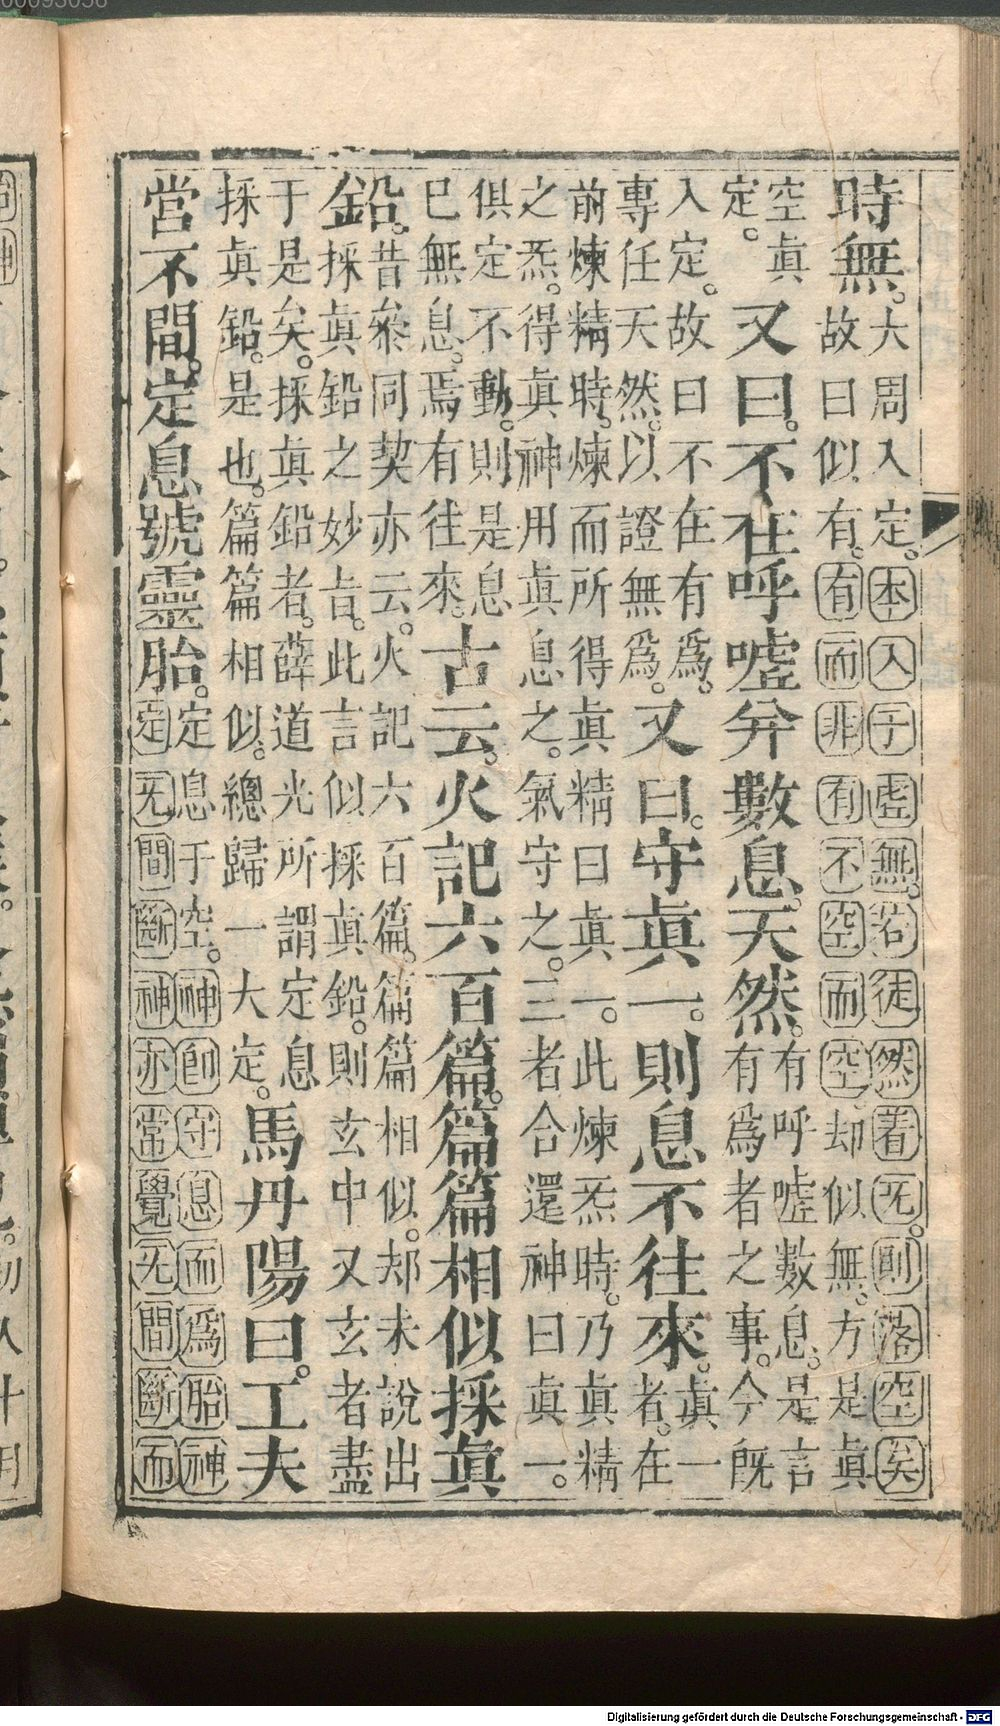 時無。
大周入定。本入于虛無。若徒然着无。則落空矣
故曰似有。有而非有不空而空。却似無。方是眞
空眞
定。
又曰。不在呼噓弁數息。天然。
有呼噓數息。是言
有爲者之事。今旣
入定。故曰不在有爲。
專任天然。以證無爲。
又曰。守眞一。則息不往來。
眞一
者。在
前煉精時。煉而所得眞精曰眞一。此煉炁時。乃眞精
之炁。得眞神用眞息之。氣守之。三者合還神曰眞一。
俱定不動。則是息
巳無息。焉有往來。
古云。火記六百篇。篇篇相似採眞
鉛。
昔叅同契亦云。火記六百篇。篇篇相似。却未說出
採眞鉛之妙㫖。此言似採眞鉛。則玄中又玄者盡
于是矣。採眞鉛者。薛道光所謂定息
採眞鉛。是也。篇篇相似。總歸一大定。
馬丹陽曰。工夫
常不間。定息號靈胎。
定息于空。神卽守息而爲胎神
定无間斷神亦常覺无間斷而
Digitalisierung gefördert durch die Deutsche Forschungsgemeinschaft - DFG